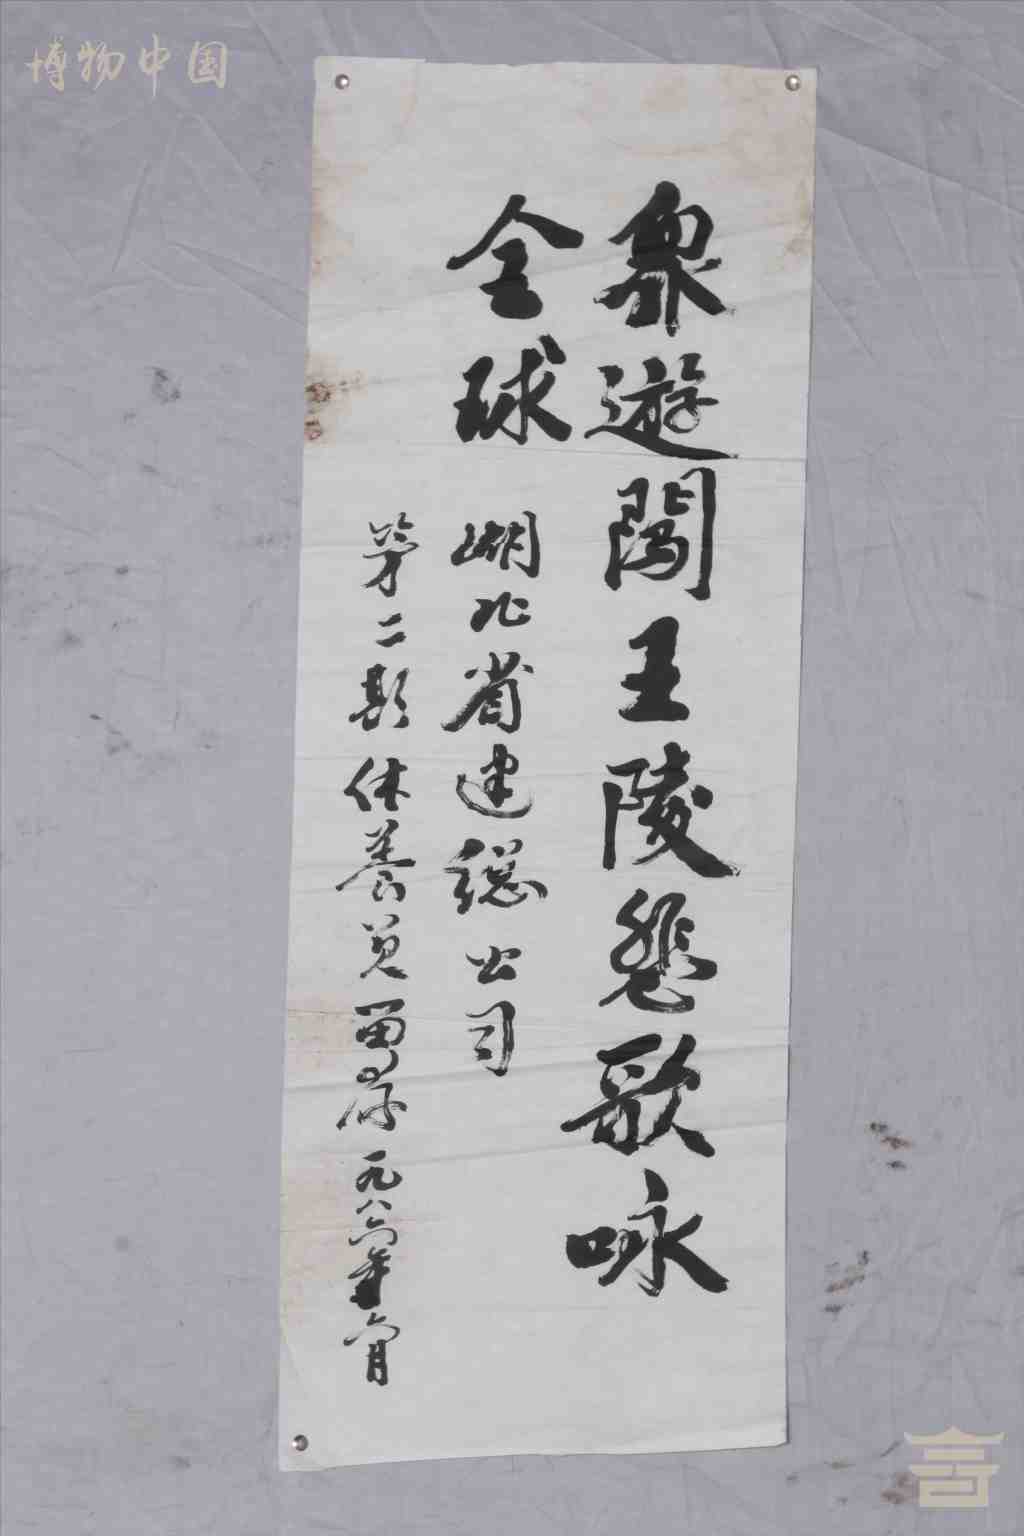 博物中国
众遊闯王陵悲歌咏
全球
湖北省建总公司
第二期休养员
一九八六年六月